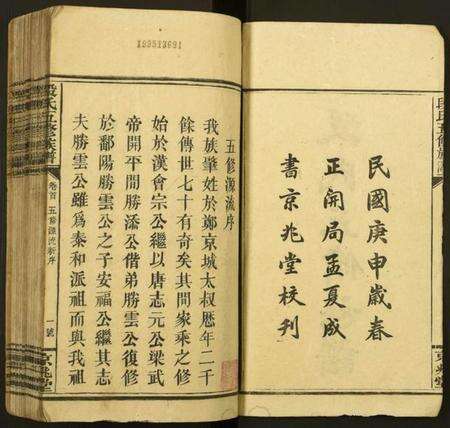 民國庚申歲春
正開局孟夏成
書京兆堂校刋
段氏五修族譜
京兆堂
195513691
五修源流序
我族肇姓於鄭京城太叔歷年二千
餘傳世七十有奇矣其間家乘之修
始於漢會宗公繼以唐志元公梁武
帝開平間勝添公偕弟勝雲公復修
於鄱陽勝雲公之子安福公繼其志
夫勝雲公雖爲泰和派祖而與我祖
段氏五修族譜
卷首
五修源流新序
一號
京兆堂